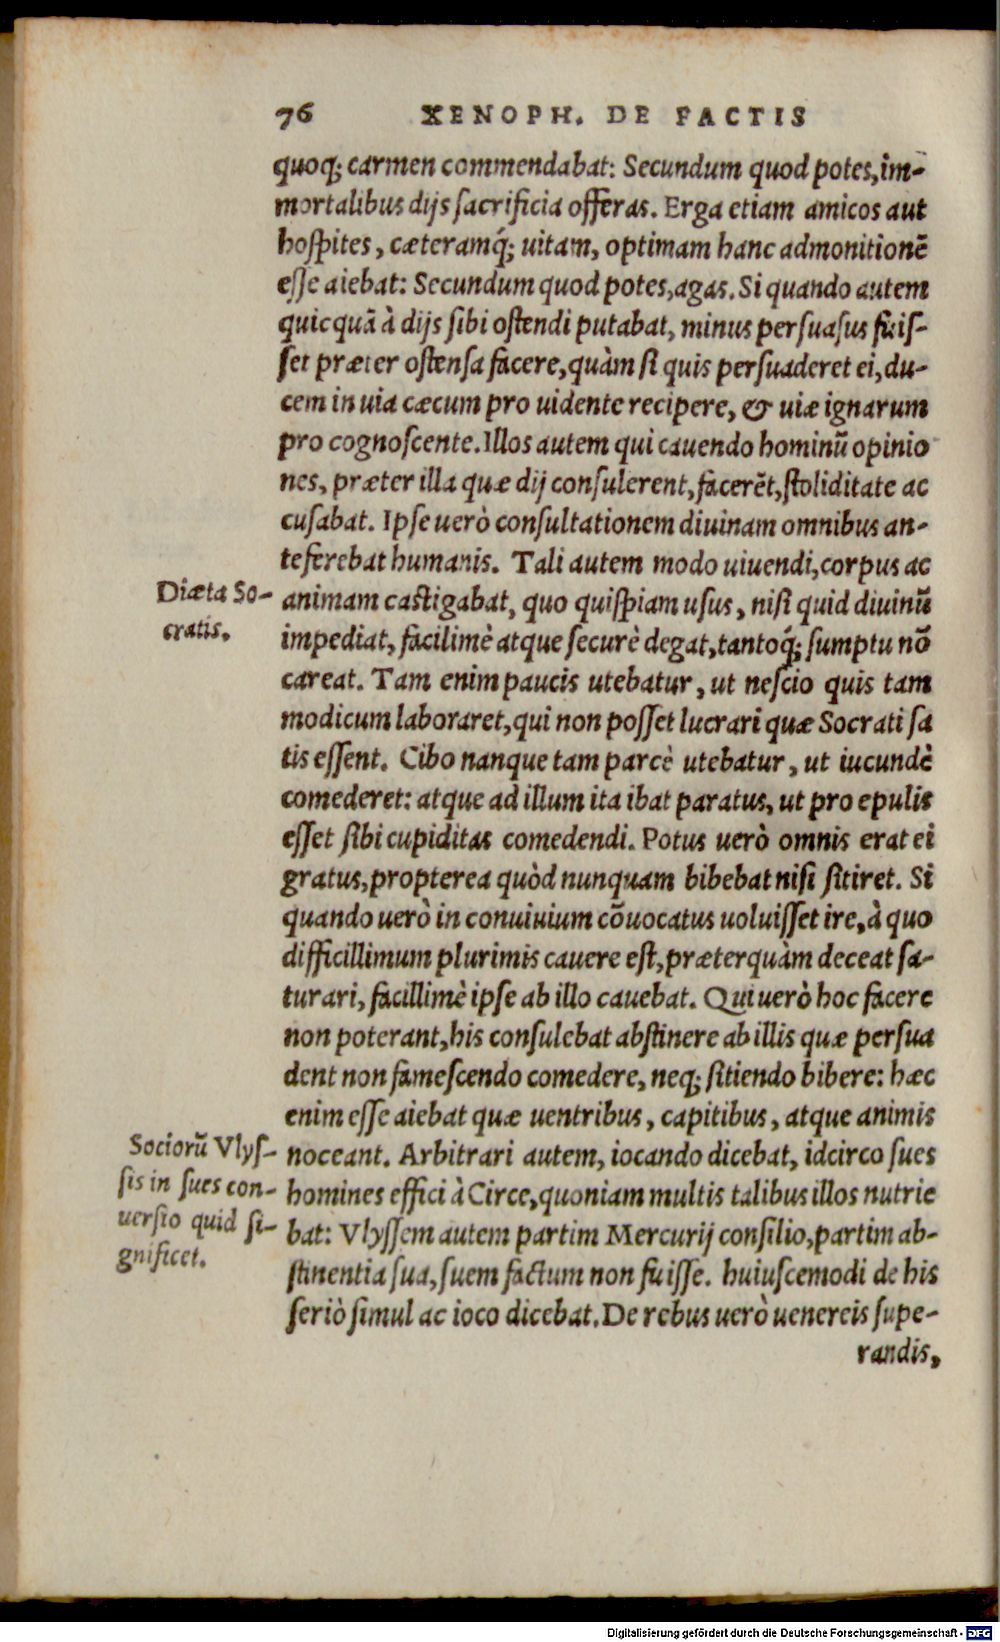 76 XENOPH. DE FACTIS
quoq; carmen commendabat: Secundum quod potes, im-
mortalibus dijs sacrificia offeras. Erga etiam amicos aut
hospites, cæteramq́; uitam, optimam hanc admonitionē
esse aiebat: Secundum quod potes, agas. Si quando autem
quicquā à dijs sibi ostendi putabat, minus persuasus fuis-
set præter ostensa facere, quàm si quis persuaderet ei, du-
cem in uia cæcum pro uidente recipere, & uiæ ignarum
pro cognoscente. Illos autem qui cauendo hominū opinio
nes, præter illa quæ dij consulerent, facerēt, stoliditate ac
cusabat. Ipse uerò consultationem diuinam omnibus an-
teferebat humanis. Tali autem modo uiuendi, corpus ac
Diæta So-
cratis.
animam castigabat, quo quispiam usus, nisi quid diuinū
impediat, facilimè atque securè degat, tantoq́; sumptu nō
careat. Tam enim paucis utebatur, ut nescio quis tam
modicum laboraret, qui non posset lucrari quæ Socrati sa
tis essent. Cibo nanque tam parcè utebatur, ut iucundè
comederet: atque ad illum ita ibat paratus, ut pro epulis
esset sibi cupiditas comedendi. Potus uerò omnis erat ei
gratus, propterea quòd nunquam bibebat nisi sitiret. Si
quando uerò in conuiuium cōuocatus uoluisset ire, à quo
difficillimum plurimis cauere est, præterquàm deceat sa-
turari, facillimè ipse ab illo cauebat. Qui uerò hoc facere
non poterant, his consulebat abstinere ab illis quæ persua
dent non famescendo comedere, neq; sitiendo bibere: hæc
enim esse aiebat quæ uentribus, capitibus, atque animis
Sociorū Vlys-
sis in sues con-
uersio quid si-
gnificet.
noceant. Arbitrari autem, iocando dicebat, idcirco sues
homines effici à Circe, quoniam multis talibus illos nutrie
bat: Vlyssem autem partim Mercurij consilio, partim ab-
stinentia sua, suem factum non fuisse. huiuscemodi de his
seriò simul ac ioco dicebat. De rebus uerò uenereis supe-
randis,
Digitalisierung gefördert durch die Deutsche Forschungsgemeinschaft - DFG